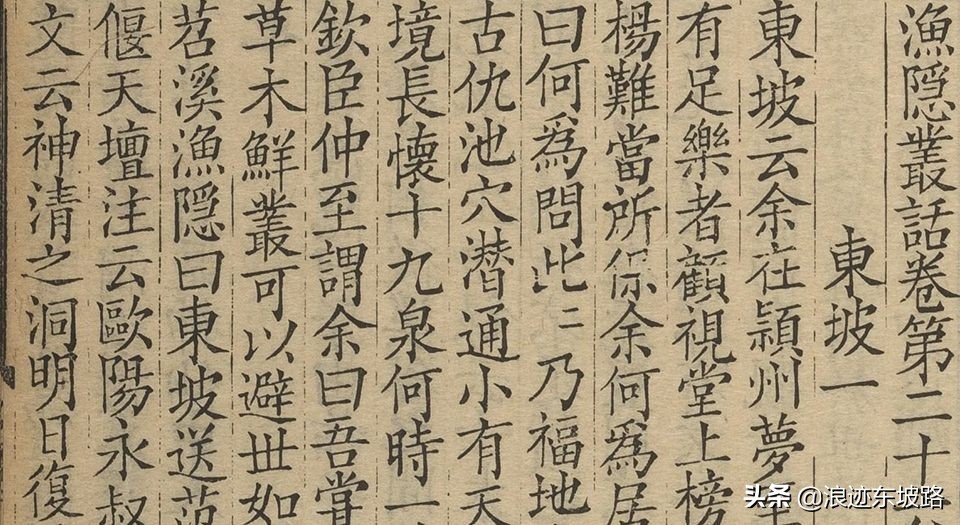 漁隱叢話卷第二十
東坡一
東坡云余在潁州夢
有足樂者顧視堂上榜
楊難當所保余何爲居
曰何爲問此〻乃福地
古仇池穴潛通小有天
境長懷十九泉何時一
欽臣仲至謂余曰吾嘗
草木鮮叢可以避世如
苕溪漁隱曰東坡送范
偃天壇注云歐陽永叔
文云神清之洞明日復
头条 @浪迹东坡路